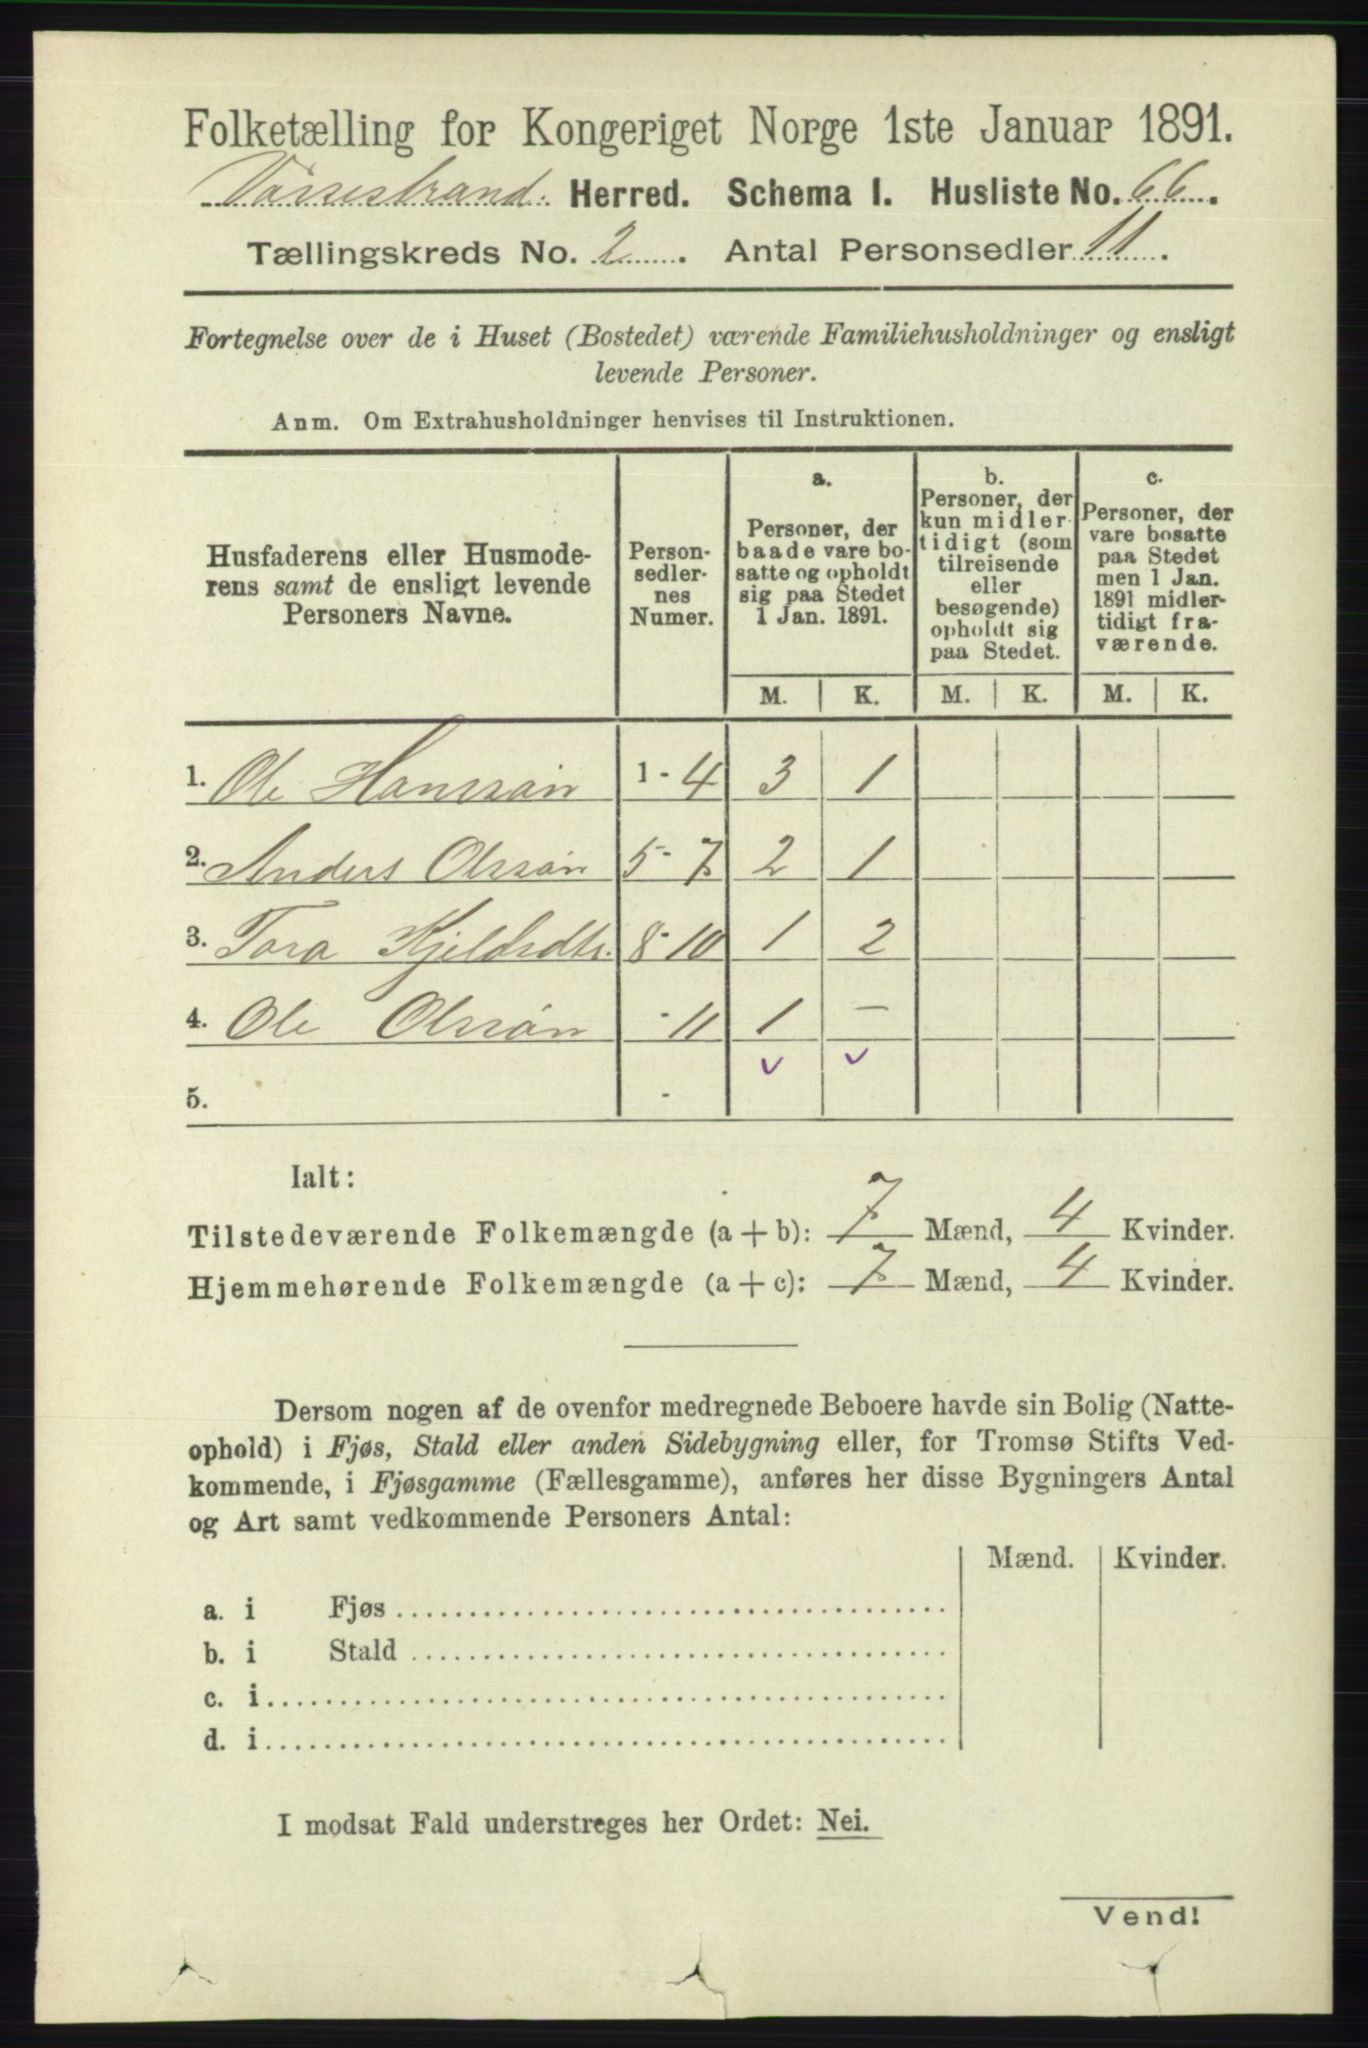 Folketælling for Kongeriget Norge 1ste Januar 1891.
Vossestrand. Herred. Schema I. Husliste No. 66.
Tællingskreds No. 2. Antal Personsedler 11.
Fortegnelse over de i Huset (Bostedet) værende Familiehusholdninger og ensligt
levende Personer.
Anm. Om Extrahusholdninger henvises til Instruktionen.
Husfaderens eller Husmode-
rens samt de ensligt levende
Personers Navne.
Person-
sedler-
nes
Numer.
a.
Personer, der
baade vare bo-
satte og opholdt
sig paa Stedet
1 Jan. 1891.
b.
Personer, der
kun midler-
tidigt (som
tilreisende
eller
besøgende)
opholdt sig
paa Stedet.
c.
Personer, der
vare bosatte
paa Stedet
men 1 Jan.
1891 midler-
tidigt fra-
værende.
M. K. M. K. M. K.
1. Ole Hanssøn 1 - 4 3 1
2. Anders Olssøn 5 - 7 2 1
3. Tora Kjelsdtr. 8 - 10 1 2
4. Ole Olssøn - 11 1 —
5. -
Ialt:
Tilstedeværende Folkemængde (a + b): 7 Mænd, 4 Kvinder.
Hjemmehørende Folkemængde (a + c): 7 Mænd, 4 Kvinder.
Dersom nogen af de ovenfor medregnede Beboere havde sin Bolig (Natte-
ophold) i Fjøs, Stald eller anden Sidebygning eller, for Tromsø Stifts Ved-
kommende, i Fjøsgamme (Fællesgamme), anføres her disse Bygningers Antal
og Art samt vedkommende Personers Antal:
Mænd. Kvinder.
a. i Fjøs
b. i Stald
c. i
d. i
I modsat Fald understreges her Ordet: Nei.
Vend!